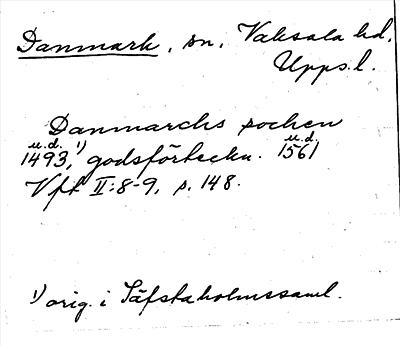 Danmark, sn, Vaksala hd,
Upps.l.
Danmarchs sochen
u.d. u.d.
1493,¹) godsförteckn. 1561
Vfl II:8-9, s. 148.
¹) orig. i Säfstaholmssaml.